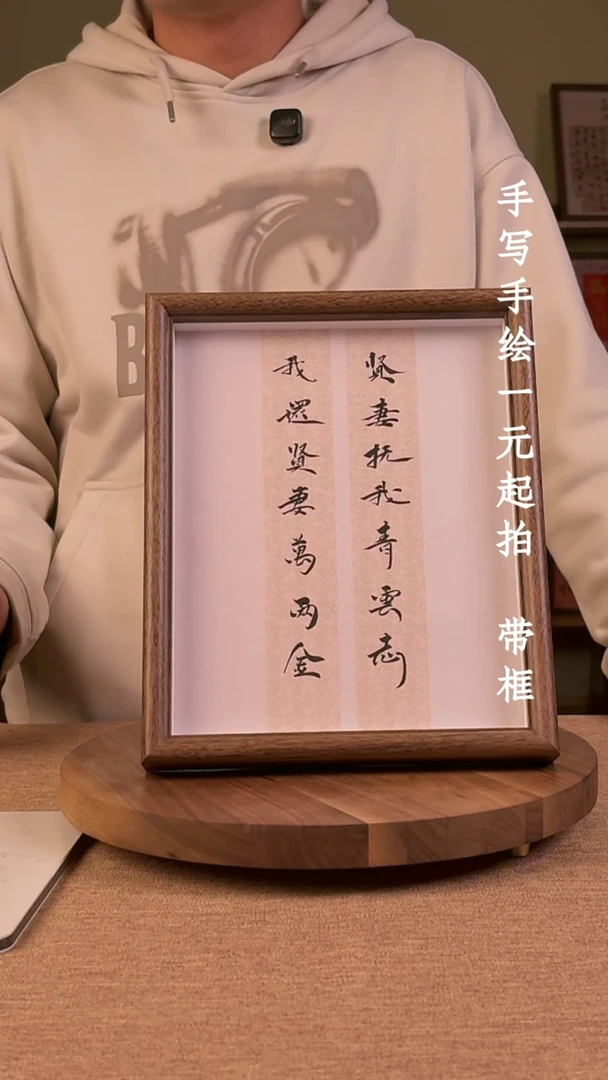 贤妻抚我青雲志
我還贤妻萬两金
手写手绘一元起拍 带框
B